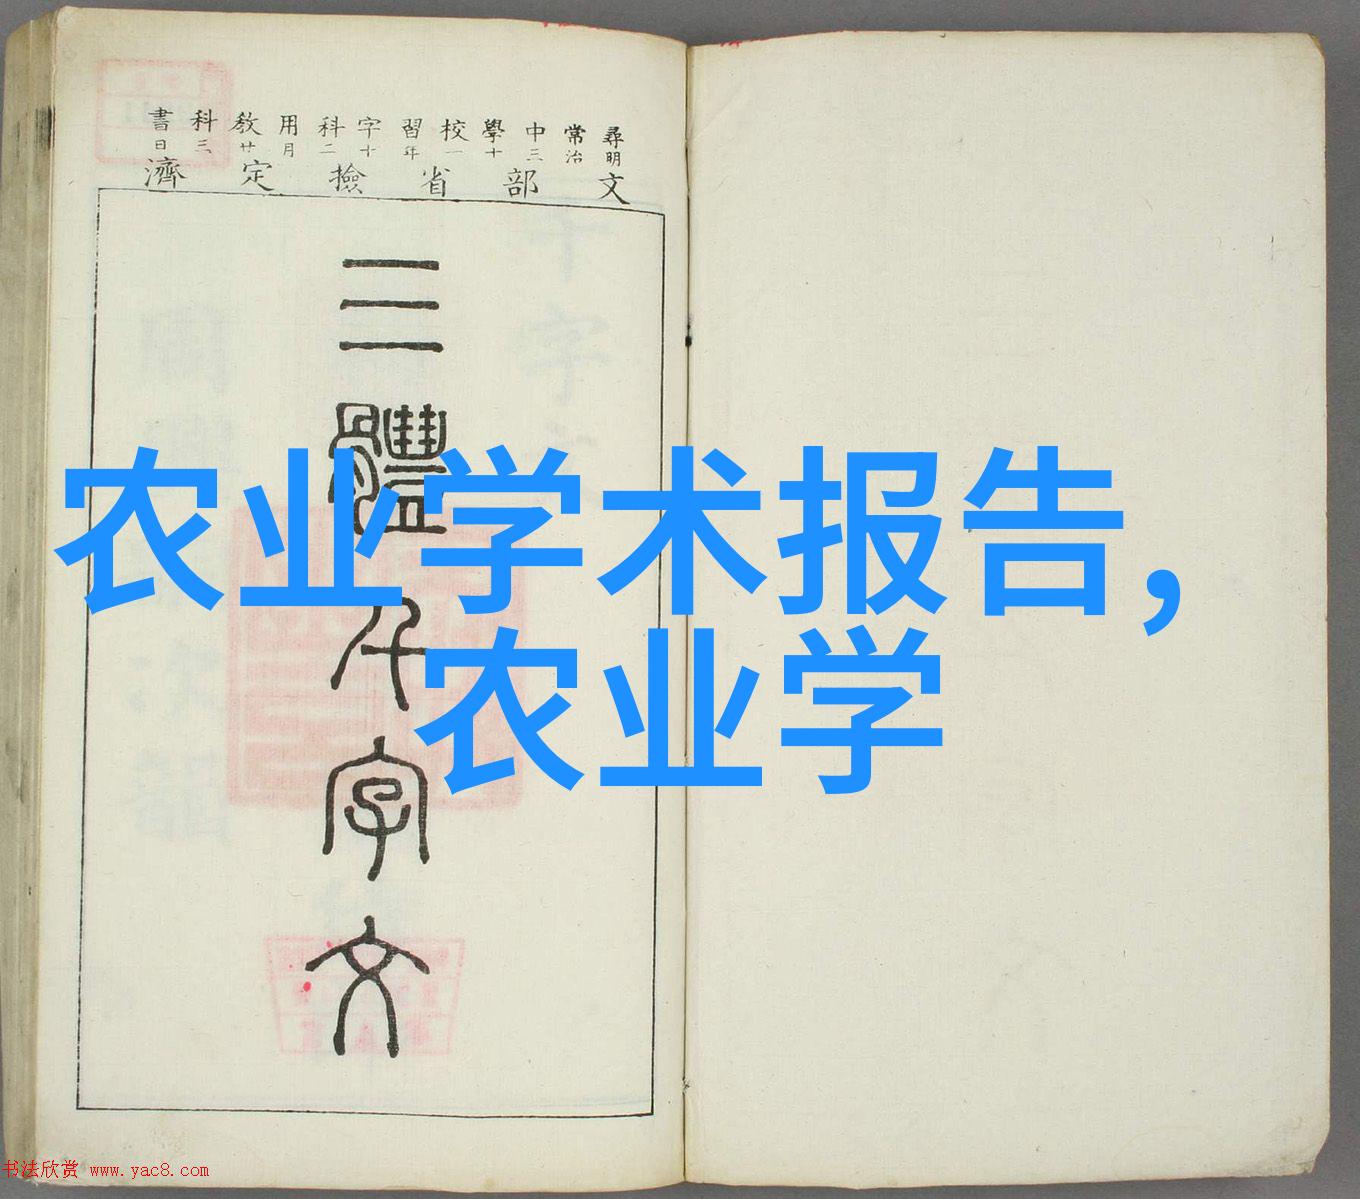 尋常中學校習字科用教科書
明治三十一年十二月廿三日
文部省撿定濟
三體千字文
农业学术报告,
农业学
书法欣赏 www.yac8.com